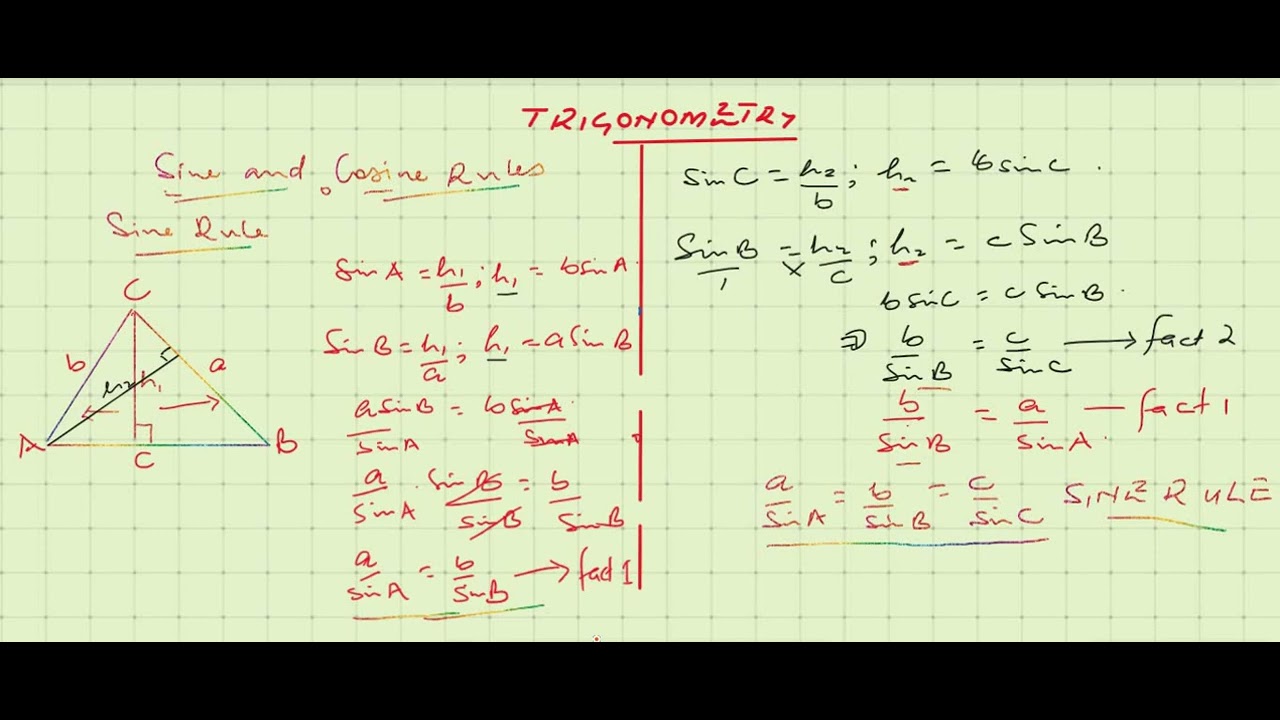 TRIGONOMETRY
Sine and Cosine Rules
Sine Rule
C
b
a
h2
h1
A
C
B
sin A = h1/b ; h1 = b sin A
sin B = h1/a ; h1 = a sin B
a sin B / sin A = b sin A / sin A
a/sin A . sin B/sin B = b/sin B
a/sin A = b/sin B → fact 1
sin C = h2/b ; h2 = b sin C .
Sin B/1 × = h2/c ; h2 = c Sin B
b sin C = c sin B .
⇒ b/sin B = c/sin C → fact 2
b/sin B = a/sin A — fact 1
a/sin A = b/sin B = c/sin C SINE RULE